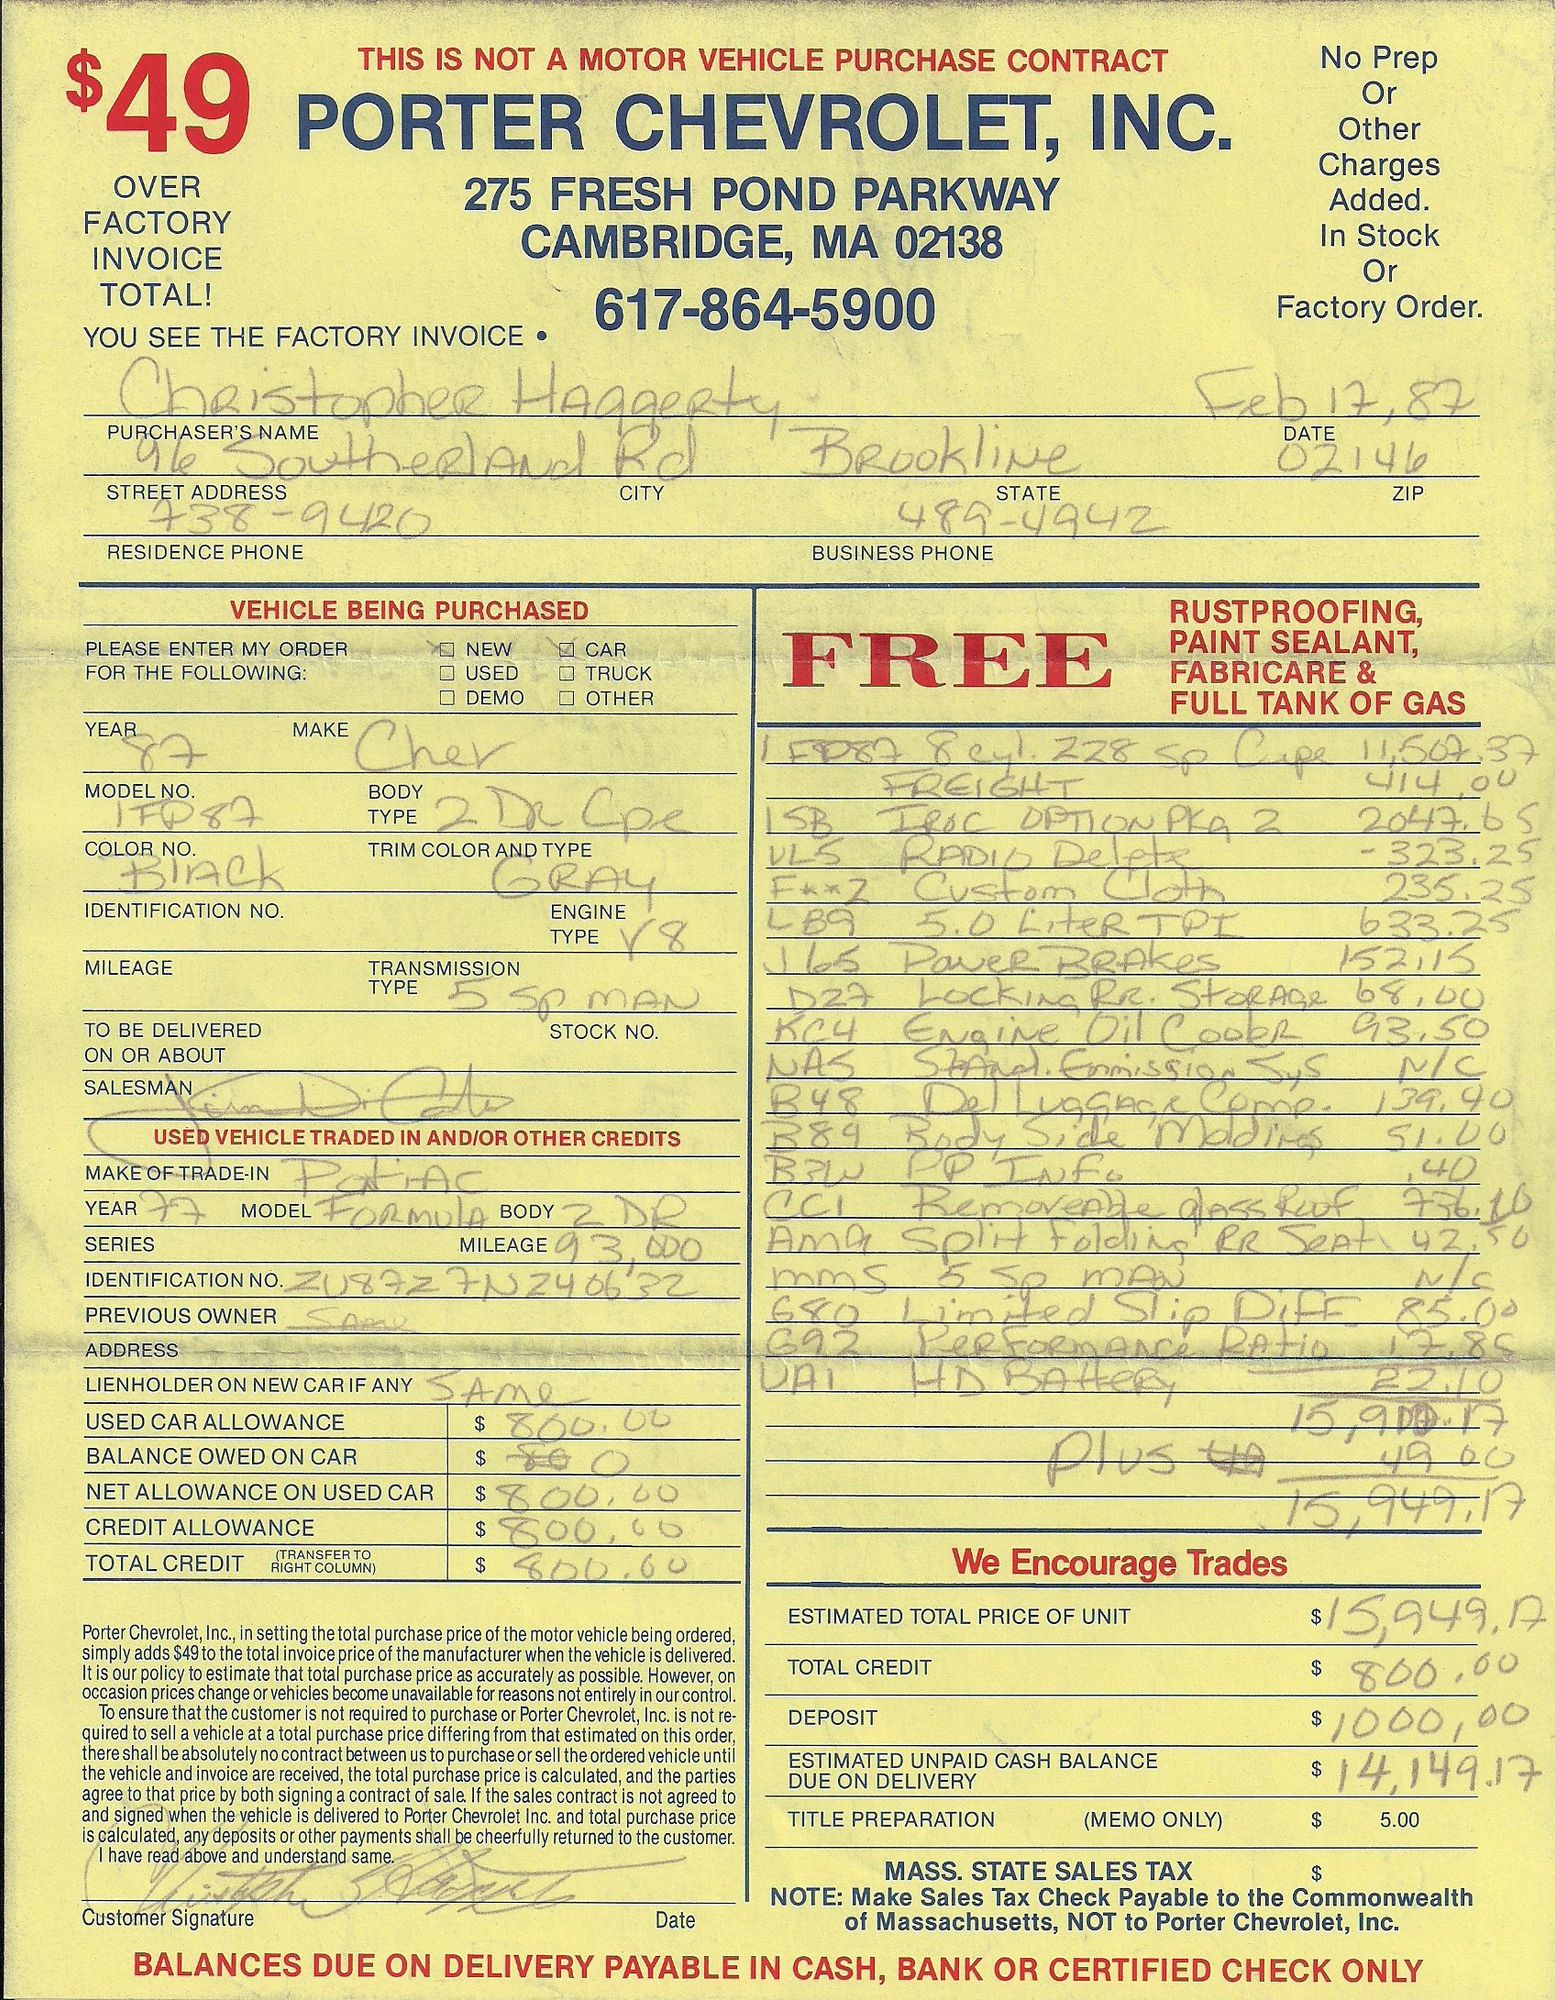 $49
OVER
FACTORY
INVOICE
TOTAL!
YOU SEE THE FACTORY INVOICE •
THIS IS NOT A MOTOR VEHICLE PURCHASE CONTRACT
PORTER CHEVROLET, INC.
275 FRESH POND PARKWAY
CAMBRIDGE, MA 02138
617-864-5900
No Prep
Or
Other
Charges
Added.
In Stock
Or
Factory Order.
Christopher Haggerty Feb 17, 87
PURCHASER'S NAME DATE
96 Southerland Rd Brookline 02146
STREET ADDRESS CITY STATE ZIP
738-9420 489-4942
RESIDENCE PHONE BUSINESS PHONE
VEHICLE BEING PURCHASED
PLEASE ENTER MY ORDER ☒ NEW ☒ CAR
FOR THE FOLLOWING: ☐ USED ☐ TRUCK
☐ DEMO ☐ OTHER
YEAR 87 MAKE Chev
MODEL NO. 1FP87 BODY TYPE 2 DR Cpe
COLOR NO. Black TRIM COLOR AND TYPE GRAY
IDENTIFICATION NO. ENGINE TYPE V8
MILEAGE TRANSMISSION TYPE 5 SP MAN
TO BE DELIVERED ON OR ABOUT STOCK NO.
SALESMAN
USED VEHICLE TRADED IN AND/OR OTHER CREDITS
MAKE OF TRADE-IN Pontiac
YEAR 77 MODEL FORMULA BODY 2 DR
SERIES MILEAGE 93,000
IDENTIFICATION NO. 2U87Z7N240632
PREVIOUS OWNER Same
ADDRESS
LIENHOLDER ON NEW CAR IF ANY SAME
USED CAR ALLOWANCE $ 800.00
BALANCE OWED ON CAR $ 0
NET ALLOWANCE ON USED CAR $ 800.00
CREDIT ALLOWANCE $ 800.00
TOTAL CREDIT (TRANSFER TO RIGHT COLUMN) $ 800.00
Porter Chevrolet, Inc., in setting the total purchase price of the motor vehicle being ordered,
simply adds $49 to the total invoice price of the manufacturer when the vehicle is delivered.
It is our policy to estimate that total purchase price as accurately as possible. However, on
occasion prices change or vehicles become unavailable for reasons not entirely in our control.
To ensure that the customer is not required to purchase or Porter Chevrolet, Inc. is not re-
quired to sell a vehicle at a total purchase price differing from that estimated on this order,
there shall be absolutely no contract between us to purchase or sell the ordered vehicle until
the vehicle and invoice are received, the total purchase price is calculated, and the parties
agree to that price by both signing a contract of sale. If the sales contract is not agreed to
and signed when the vehicle is delivered to Porter Chevrolet Inc. and total purchase price
is calculated, any deposits or other payments shall be cheerfully returned to the customer.
I have read above and understand same.
Customer Signature Date
FREE
RUSTPROOFING,
PAINT SEALANT,
FABRICARE &
FULL TANK OF GAS
1FP87 8 cyl. Z28 Sp Cupe 11,507.37
FREIGHT 414.00
1SB IROC OPTION PKG 2 2047.65
UL5 RADIO Delete -323.25
F**2 Custom Cloth 235.25
LB9 5.0 Liter TPI 633.25
J65 Power BRAKES 152.15
D27 Locking RR. Storage 68.00
KC4 Engine Oil Cooler 93.50
NA5 Stand. Emmission Sys N/C
B48 Del Luggage Comp. 139.40
B84 Body Side Moldings 51.00
B3W PP Info .40
CC1 Removeable glass Roof
AM9 Split Folding RR Seat 42.50
MM5 5 SP MAN N/C
G80 Limited Slip Diff 85.00
G92 PERFORMANCE RATIO 17.85
UA1 HD BATTERY 22.10
15,900.17
Plus 49.00
15,949.17
We Encourage Trades
ESTIMATED TOTAL PRICE OF UNIT $15,949.17
TOTAL CREDIT $ 800.00
DEPOSIT $1000,00
ESTIMATED UNPAID CASH BALANCE
DUE ON DELIVERY $ 14,149.17
TITLE PREPARATION (MEMO ONLY) $ 5.00
MASS. STATE SALES TAX $
NOTE: Make Sales Tax Check Payable to the Commonwealth
of Massachusetts, NOT to Porter Chevrolet, Inc.
BALANCES DUE ON DELIVERY PAYABLE IN CASH, BANK OR CERTIFIED CHECK ONLY